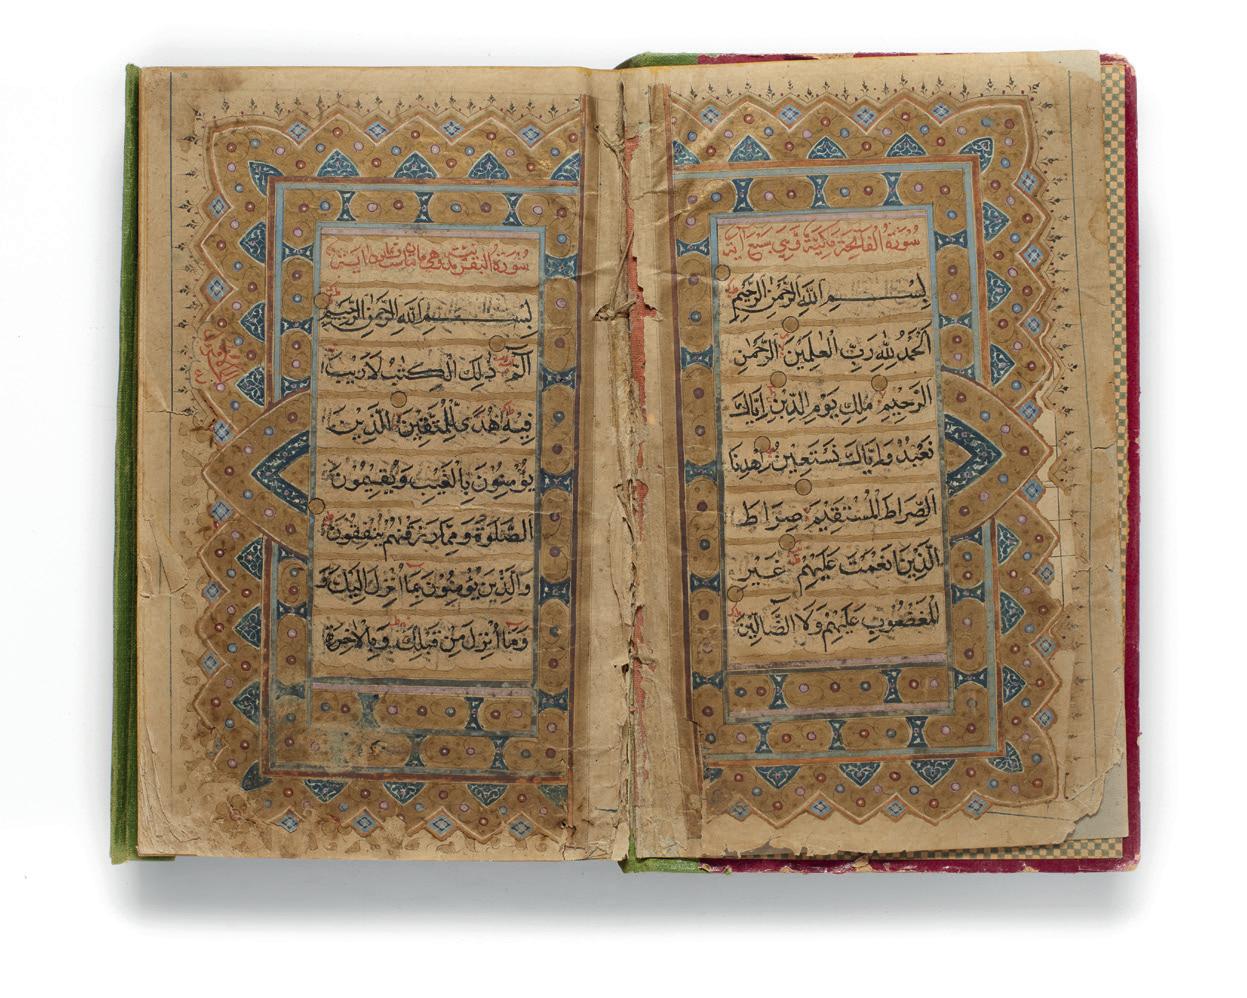 سورة الفاتحة مكية وهي سبع آية
بِسْمِ اللّٰهِ الرَّحْمٰنِ الرَّحِيْمِ
اَلْحَمْدُ لِلّٰهِ رَبِّ الْعٰلَمِيْنَ الرَّحْمٰنِ
الرَّحِيْمِ مٰلِكِ يَوْمِ الدِّيْنِ اِيَّاكَ
نَعْبُدُ وَاِيَّاكَ نَسْتَعِيْنُ اِهْدِنَا
الصِّرَاطَ الْمُسْتَقِيْمَ صِرَاطَ
الَّذِيْنَ اَنْعَمْتَ عَلَيْهِمْ غَيْرِ
الْمَغْضُوْبِ عَلَيْهِمْ وَلَا الضَّالِّيْنَ
سورة البقر وهي مائتان آية
بِسْمِ اللّٰهِ الرَّحْمٰنِ الرَّحِيْمِ
الٓمّٓ ذٰلِكَ الْكِتٰبُ لَا رَيْبَ
فِيْهِ هُدًى لِّلْمُتَّقِيْنَ الَّذِيْنَ
يُؤْمِنُوْنَ بِالْغَيْبِ وَيُقِيْمُوْنَ
الصَّلٰوةَ وَمِمَّا رَزَقْنٰهُمْ يُنْفِقُوْنَ
وَالَّذِيْنَ يُؤْمِنُوْنَ بِمَا اُنْزِلَ اِلَيْكَ وَ
وَمَا اُنْزِلَ مِنْ قَبْلِكَ وَبِالْاٰخِرَةِ